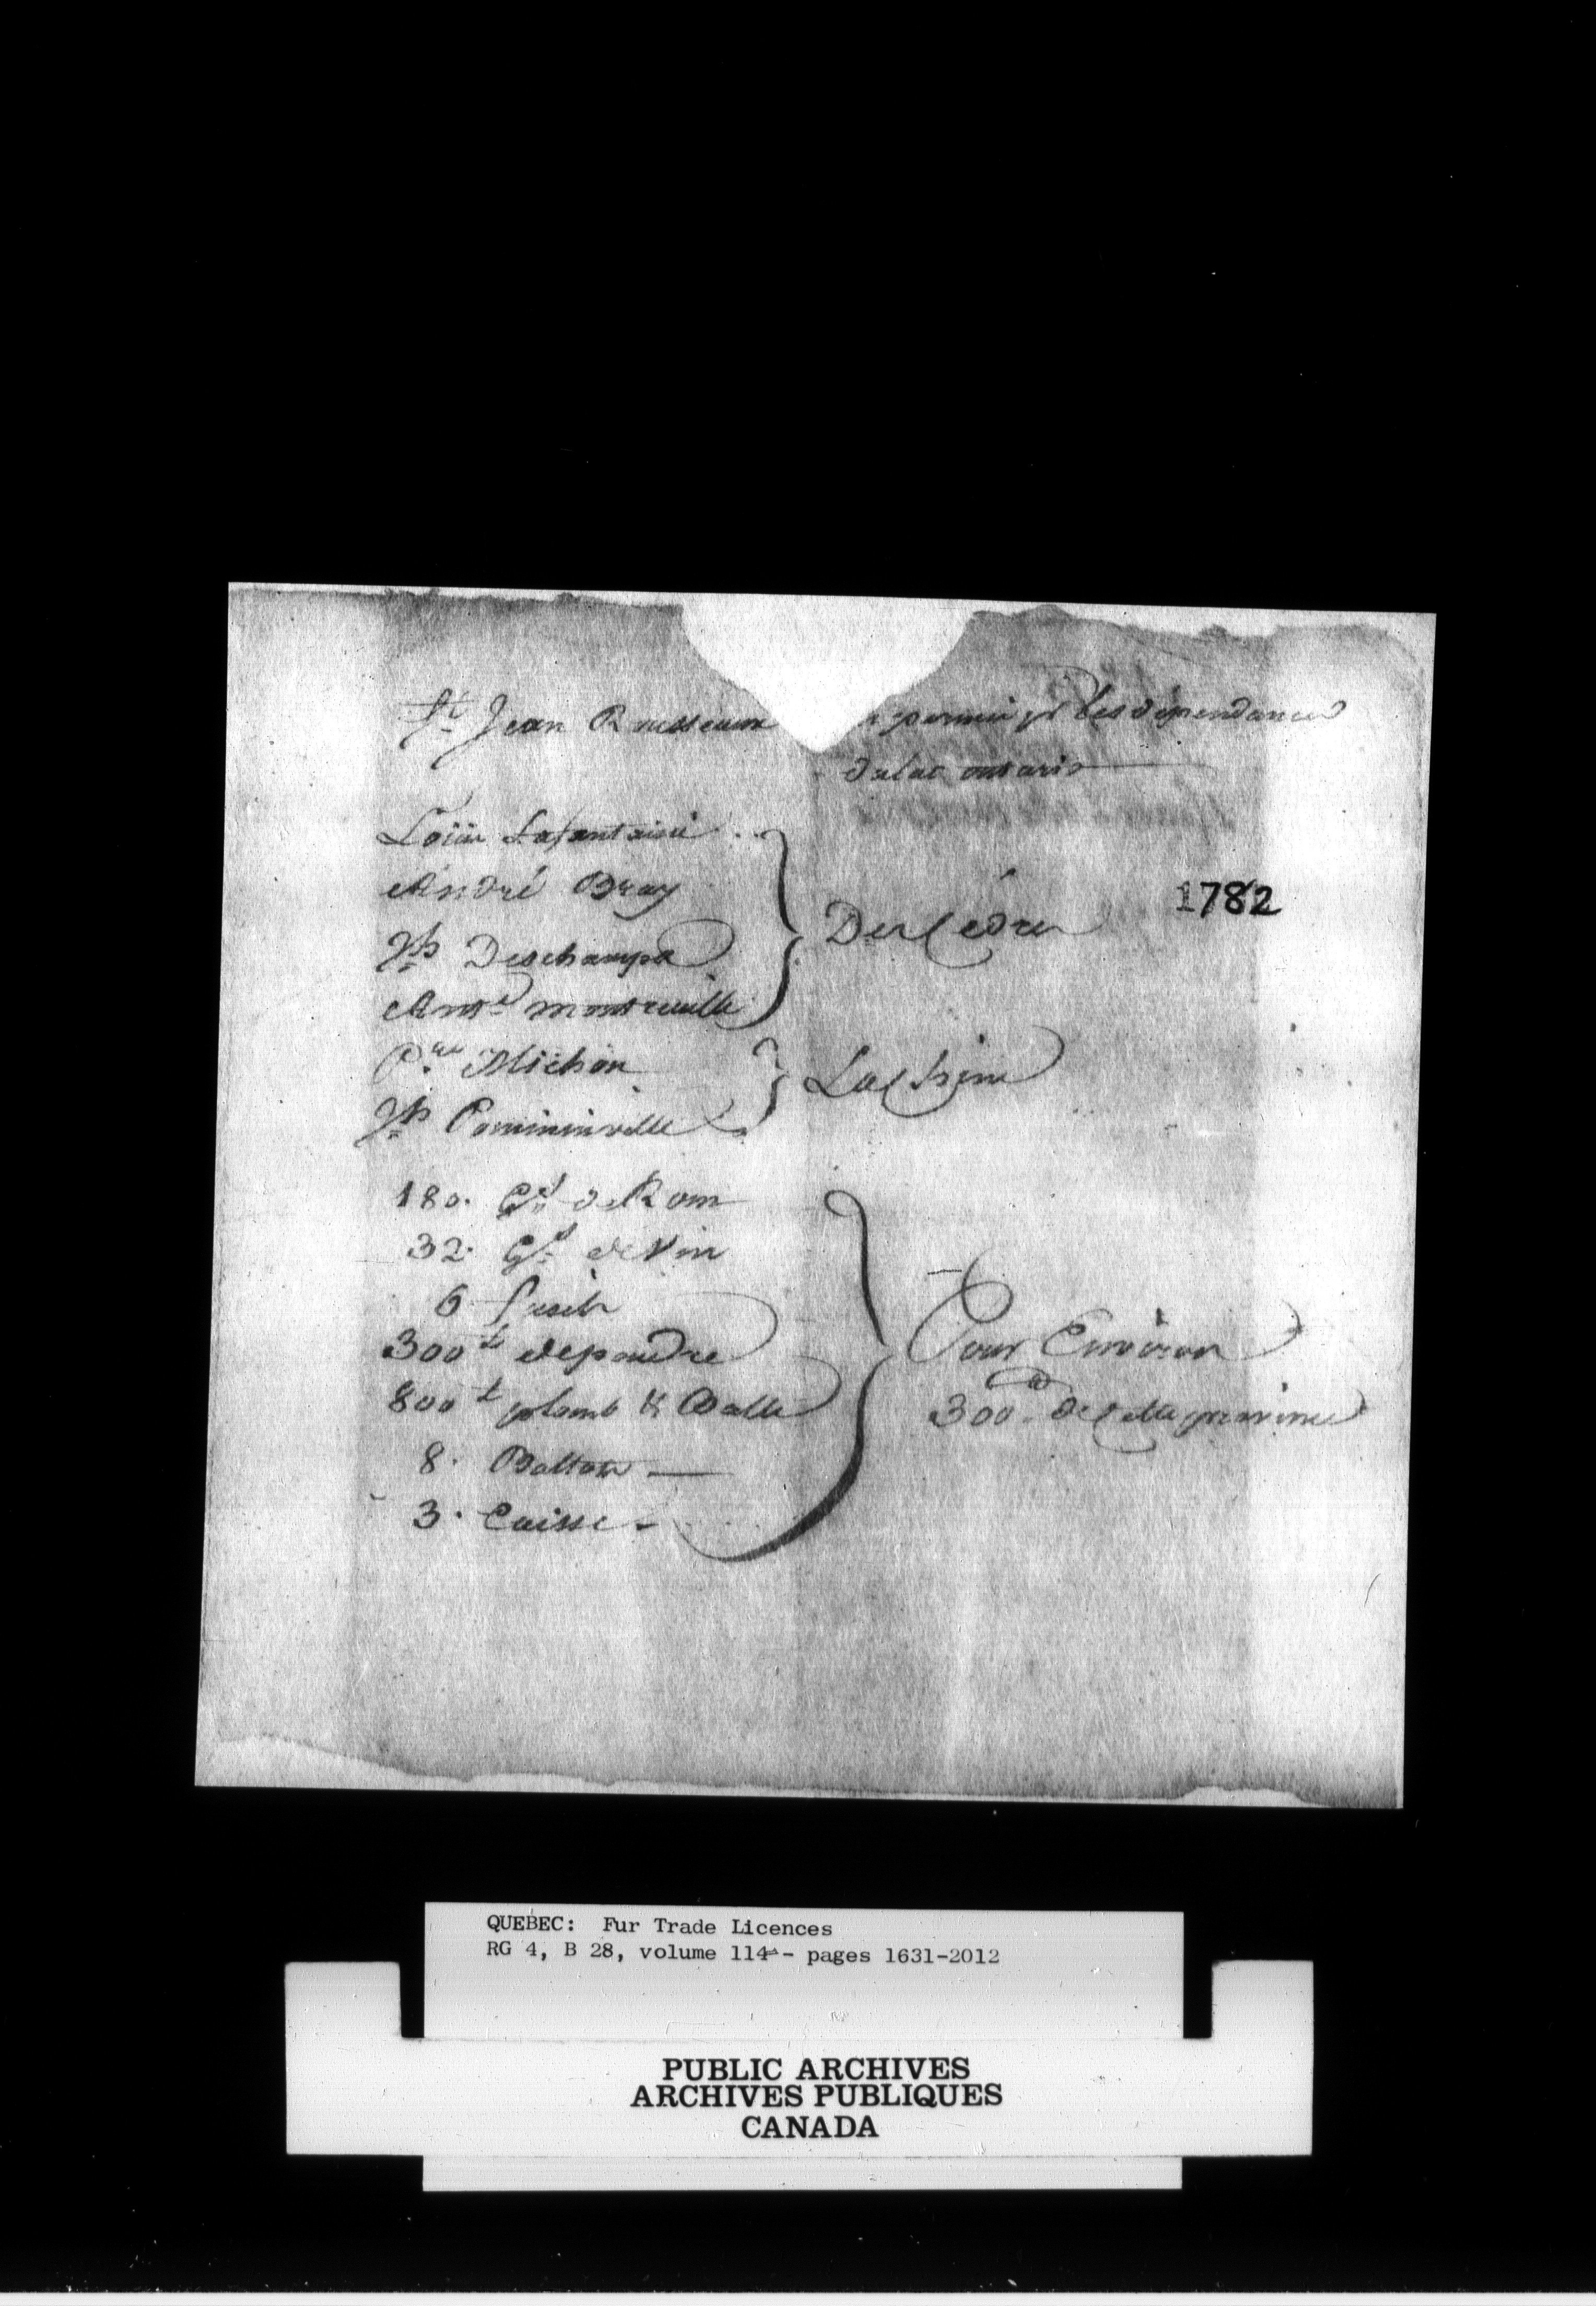 St Jean Rousseaux permis pr les dépendances
du lac ontario
Loüis Lafontaine
André Bray
1782
Des Cedres
Jph Deschamps
Ante montreuille
Pre Michon
La chine
Jph Pominville
180. Gs de Rom
32. Gs de Vin
6 fusils
300 l de poudre
Pour Environ
800 l plomb & Balle
300 de cette province
8. Ballots
3. Caisse
QUEBEC: Fur Trade Licences
RG 4, B 28, volume 114 - pages 1631-2012
PUBLIC ARCHIVES
ARCHIVES PUBLIQUES
CANADA